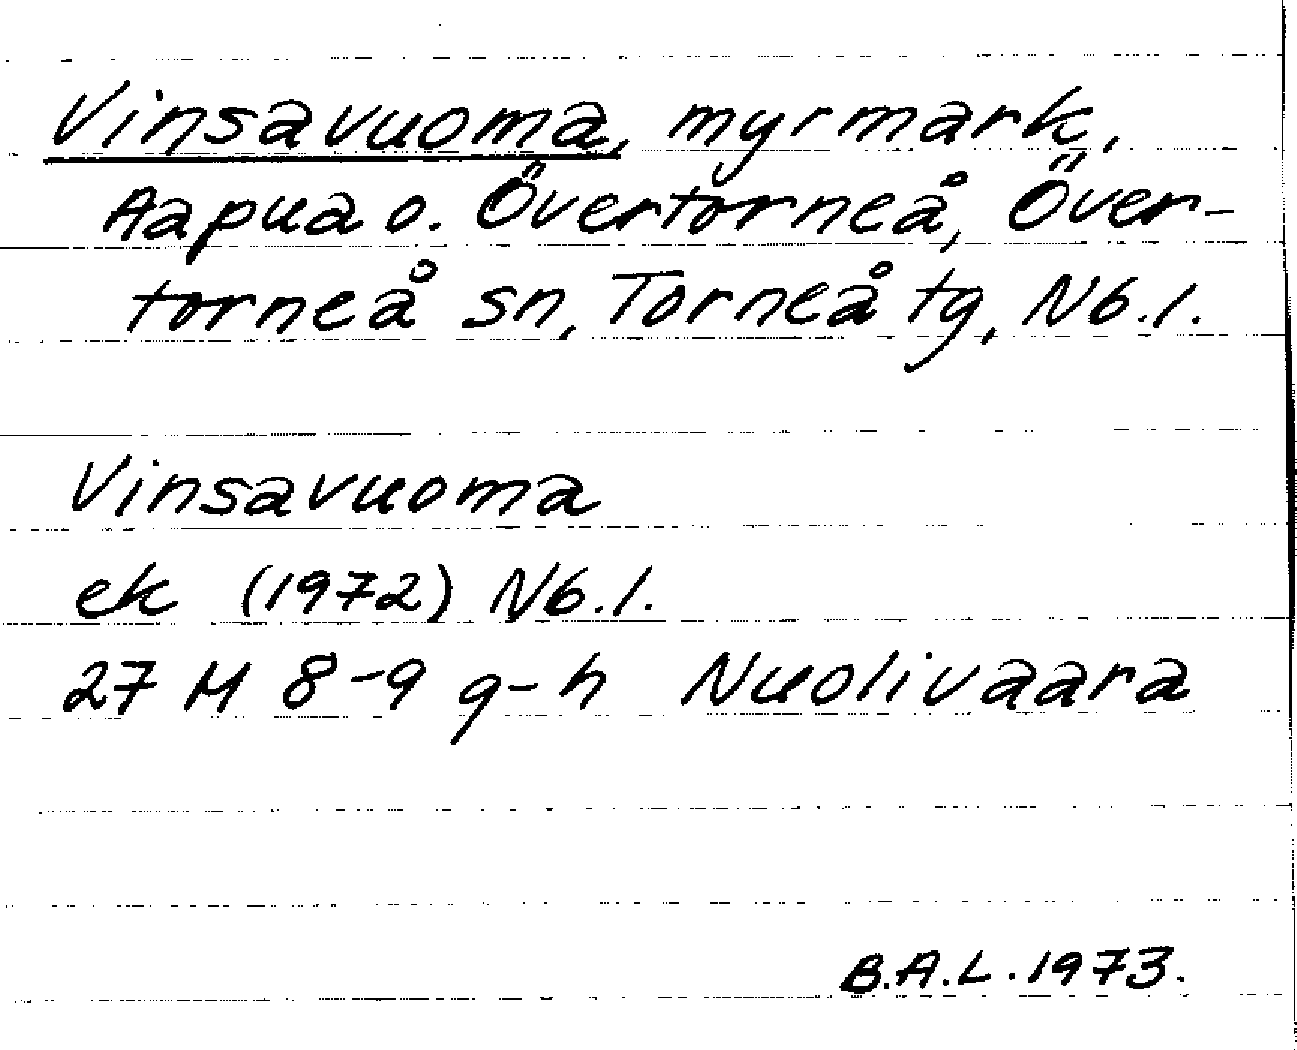 Vinsavuoma, myrmark,
Aapua o. Övertorneå, Över-
torneå sn, Torneå tg, Nb.l.
Vinsavuoma
ek (1972) Nb.l.
27 M 8-9 g-h Nuolivaara
B.A.L. 1973.